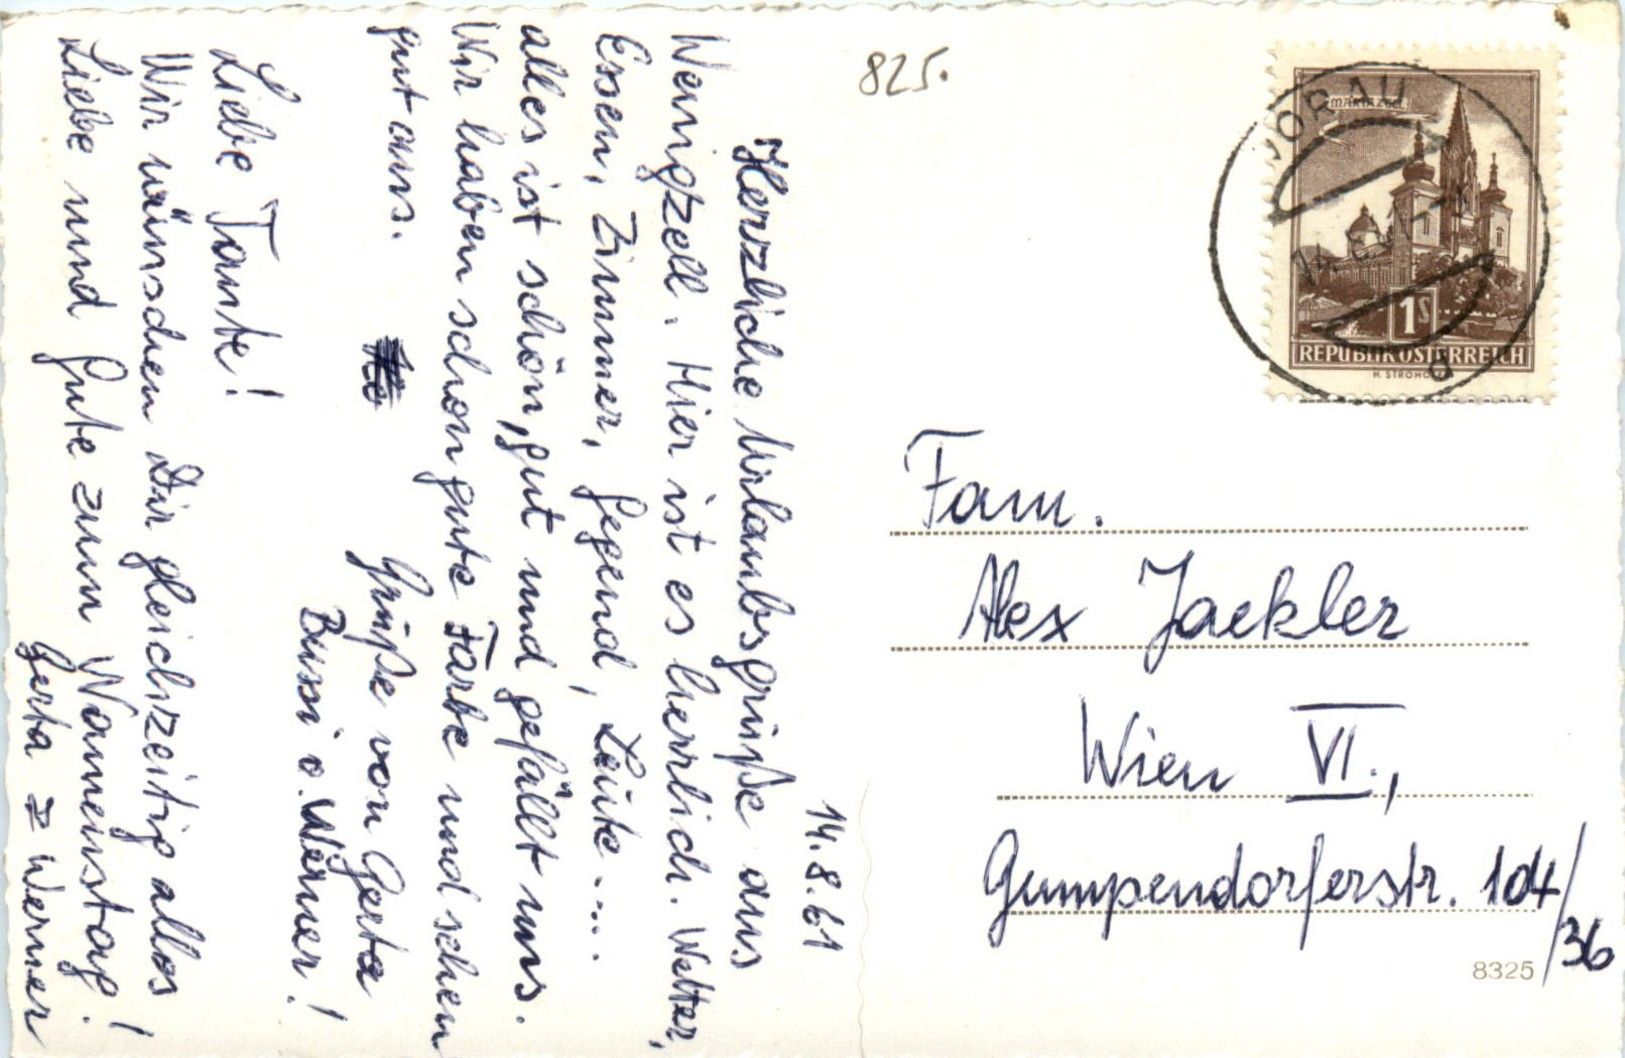 14.8.61
Herzliche Urlaubsgrüße aus
Wenigzell. Hier ist es herrlich. Wetter,
Essen, Zimmer, Gegend, Leute ....
alles ist schön, gut und gefällt uns.
Wir haben schon gute Farbe und sehen
gut aus.
Grüße von Gerta
Bussi v. Werner!
Liebe Tante!
Wir wünschen Dir gleichzeitig alles
Liebe und Gute zum Namenstag!
Gerta u Werner
825.
MARIAZELL
VORAU
14.8.61
a
1S
REPUBLIK ÖSTERREICH
Fam.
Alex Jaekler
Wien VI.,
Gumpendorferstr. 104/36
8325